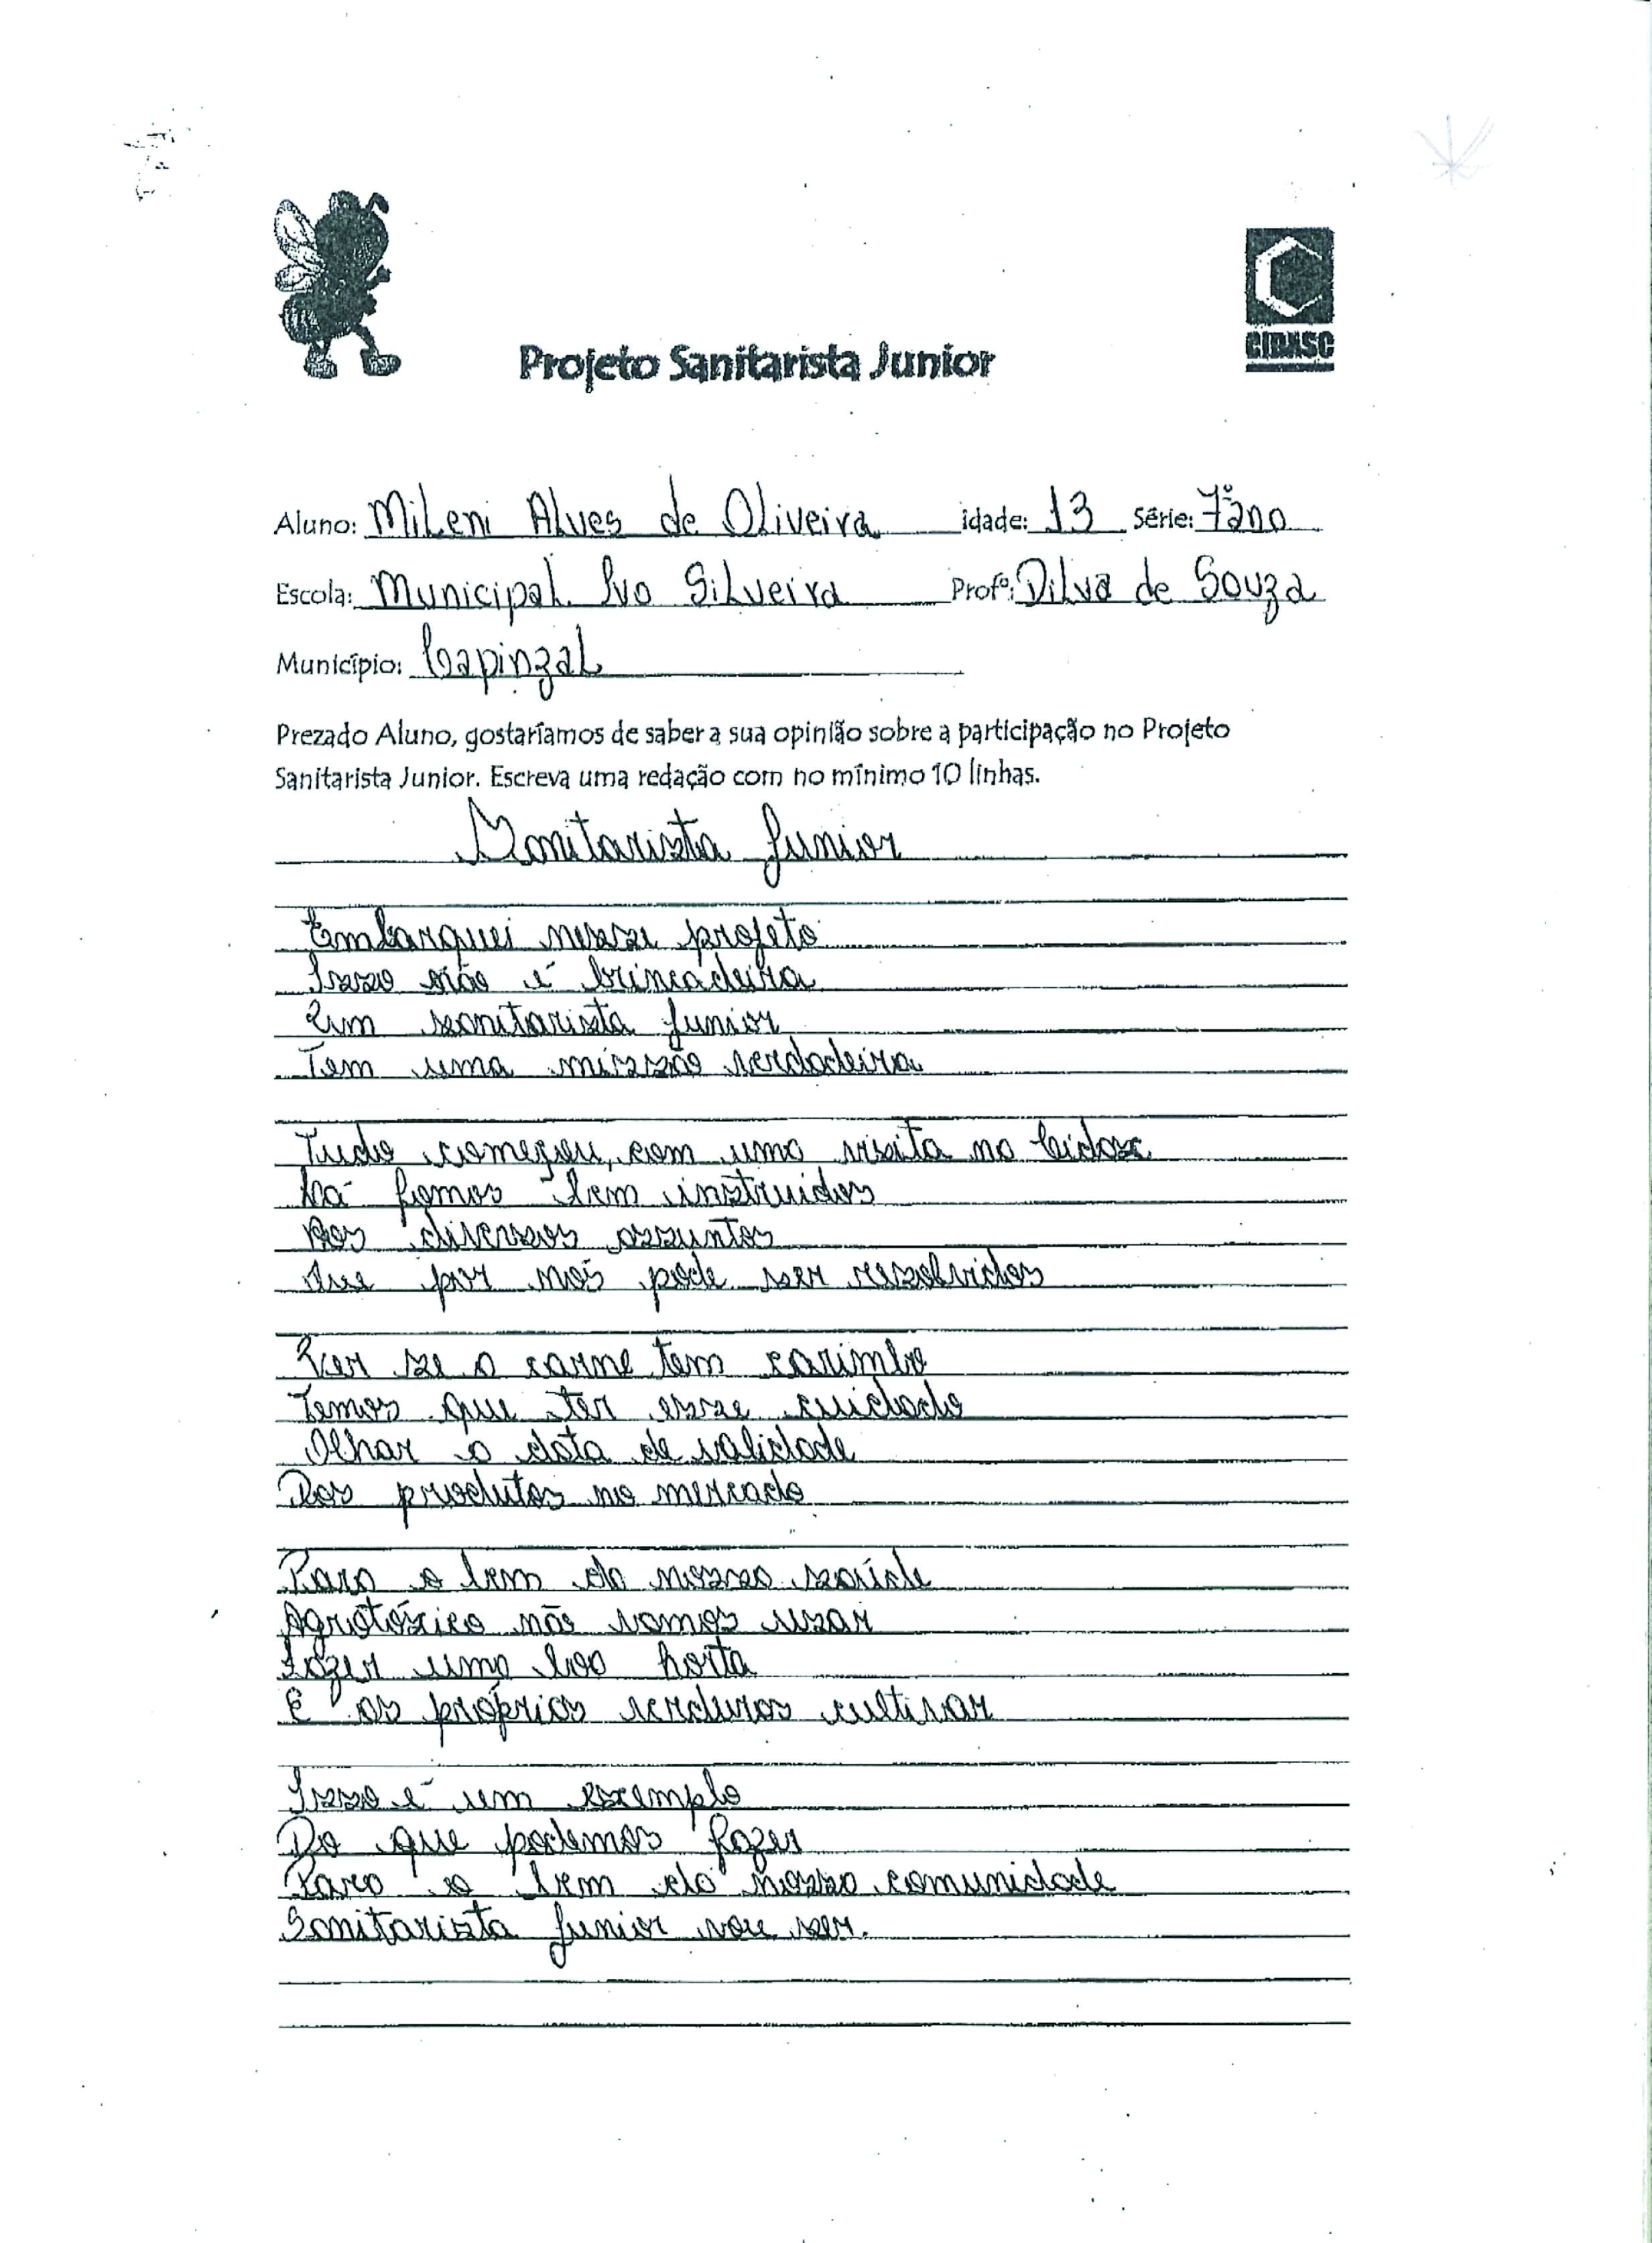 CIDASC
Projeto Sanitarista Junior
Aluno: Mileni Alves de Oliveira idade: 13 Série: 7º ano
Escola: Municipal Ivo Silveira Profº: Dilva de Souza
Município: Capinzal
Prezado Aluno, gostaríamos de saber a sua opinião sobre a participação no Projeto
Sanitarista Junior. Escreva uma redação com no mínimo 10 linhas.
Sanitarista Junior
Embarquei nesse projeto
Isso não é brincadeira
Um sanitarista junior
Tem uma missão verdadeira
Tudo começou, com uma visita na Cidasc
Lá fomos bem instruidos
Dos diversos assuntos
Que por nós pode ser resolvidos
Ver se a carne tem carimbo
Temos que ter esse cuidado
Olhar a data de validade
Dos produtos no mercado
Para o bem da nossa saúde
Agrotóxico não vamos usar
Fazer uma boa horta
E as próprias verduras cultivar
Isso é um exemplo
Do que podemos fazer
Para o bem da nossa comunidade
Sanitarista junior vou ser.